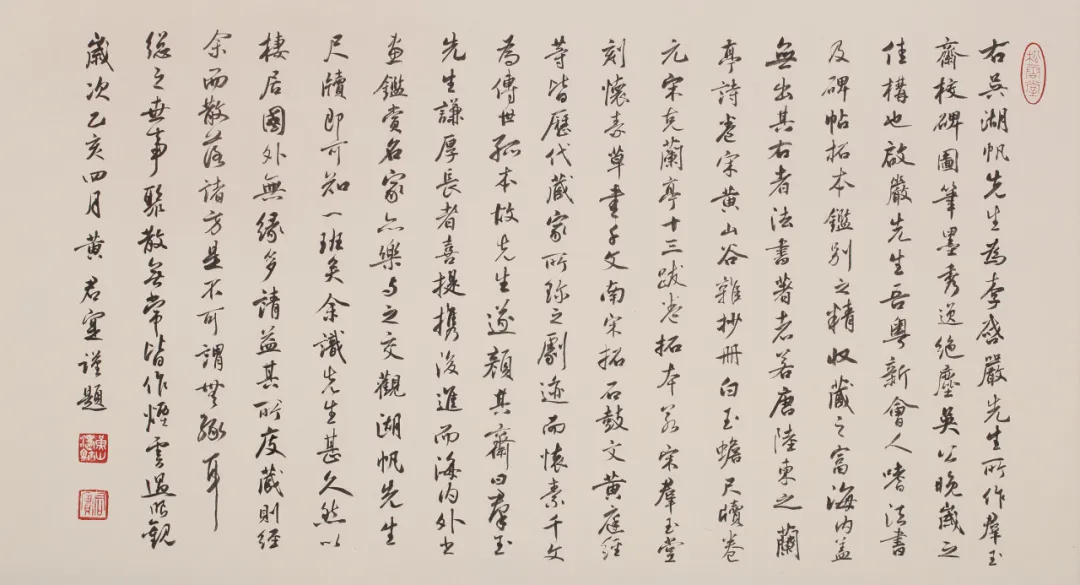 右吳湖帆先生為李啓嚴先生所作群玉
齋校碑圖筆墨秀逸絶塵吳公晚歲之
佳構也啟嚴先生吾粵新會人嗜法書
及碑帖拓本鑑別之精收藏之富海內蓋
無出其右者法書著者若唐陸東之蘭
亭詩卷宋黃山谷雜抄冊白玉蟾尺牘卷
元宋克蘭亭十三跋卷拓本若宋群玉堂
刻懷素草書千文南宋拓石鼓文黃庭經
等皆歷代藏家所珍之劇迹而懷素千文
為傳世孤本故先生遂顏其齋曰群玉
先生謙厚長者喜提携後進而海內外書
畫鑑賞名家亦樂與之交觀湖帆先生
尺牘即可知一班矣余識先生甚久然以
棲居國外無緣多請益其所庋藏則經
余而散落諸方是不可謂無緣耳
總之世事聚散無常皆作煙雲過眼觀
歲次乙亥四月黃君寔謹題